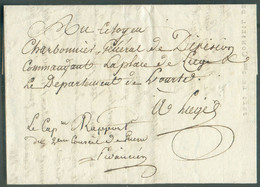 Au Citoyen
Charbonnier Général de Division
Commandant La place de Liege
Le Département de Lourte
A Liege
Le Cap.ne Rapport
du 2eme Conseil de Guerre